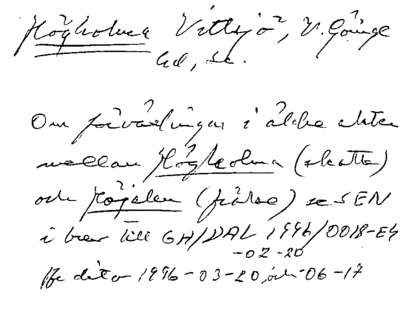 Högholma Vittsjö, V. Göinge
hd, Sk.
Om förväxlingar i äldre akter
mellan Högholma (skatte)
och Höjalen (frälse) se SEN
i brev till GH/DAL 1996/0018-E4
-02-20
dito 1996-03-20 och -06-17